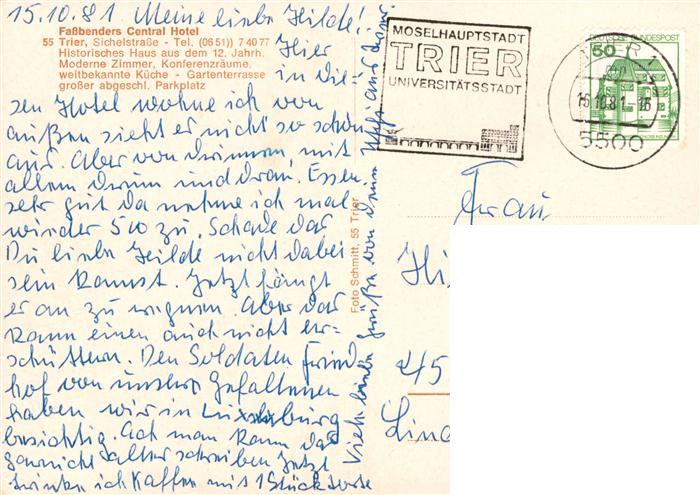 15.10.81 Meine liebe Hilde!
Faßbenders Central Hotel
55 Trier, Sichelstraße - Tel. (06 51) 7 40 77
Historisches Haus aus dem 12. Jahrh.
Moderne Zimmer, Konferenzräume,
weltbekannte Küche - Gartenterrasse
großer abgeschl. Parkplatz
Hier
in die=
sen Hotel wohne ich von
außen sieht er nicht so schön
aus. Aber von drinnen, mit
allem drum und dran. Essen
sehr gut da nehme ich mal
wieder 5 ℔ zu. Schade das
Du liebe Hilde nicht dabei
sein kannst. Jetzt fängt
er an zu regnen. Aber das
kann einen auch nicht er=
schüttern. Den Soldaten Fried
hof von unsere Gefallenen
haben wir in Luxemburg
besichtig. Ach man kann das
garnicht alles schreiben Jetzt
trinke ich Kaffee mit 1 Stück Torte
Viele liebe Grüße von Deine
Foto Schmitt, 55 Trier
MOSELHAUPTSTADT
TRIER
UNIVERSITÄTSSTADT
DEUTSCHE BUNDESPOST
50
TRIER 1
15.10.81-15
5500
Frau
Hi
45
Lin